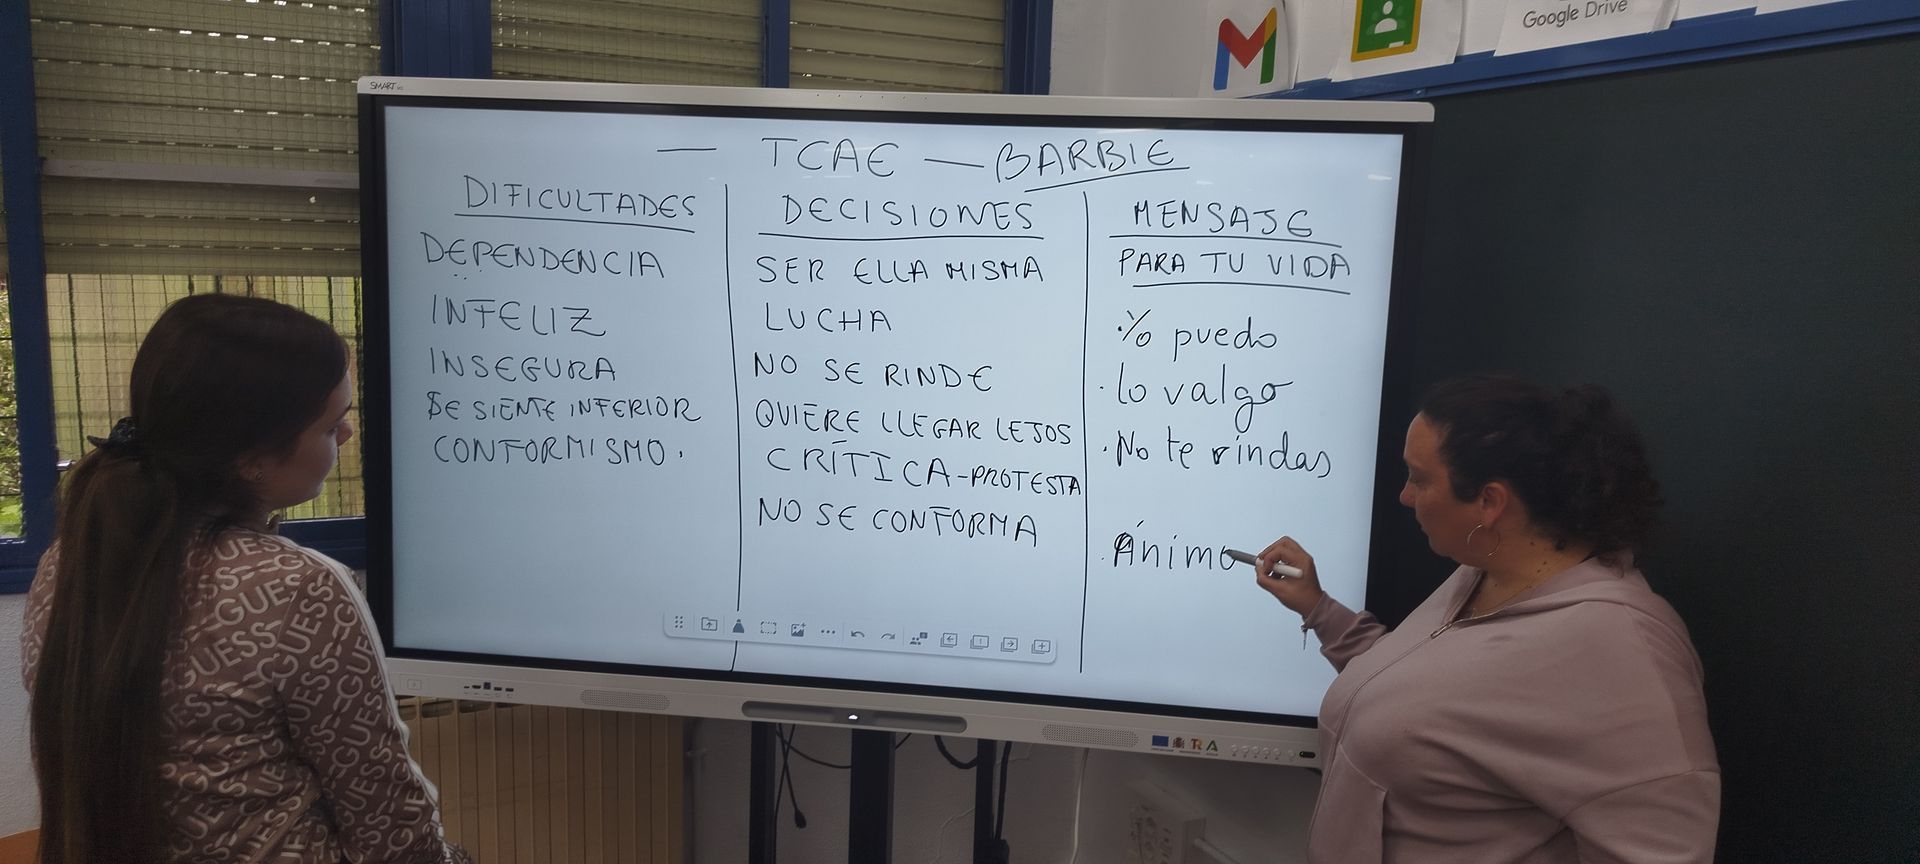 Google Drive
SMART
— TCAE — BARBIE
DIFICULTADES
DEPENDENCIA
INFELIZ
INSEGURA
SE SIENTE INFERIOR
CONFORMISMO.
DECISIONES
SER ELLA MISMA
LUCHA
NO SE RINDE
QUIERE LLEGAR LEJOS
CRÍTICA-PROTESTA
NO SE CONFORMA
MENSAJE
PARA TU VIDA
· Yo puedo
· lo valgo
· No te rindas
· Ánimo
GUESS
GUESS
GUESS
GUESS
GUESS